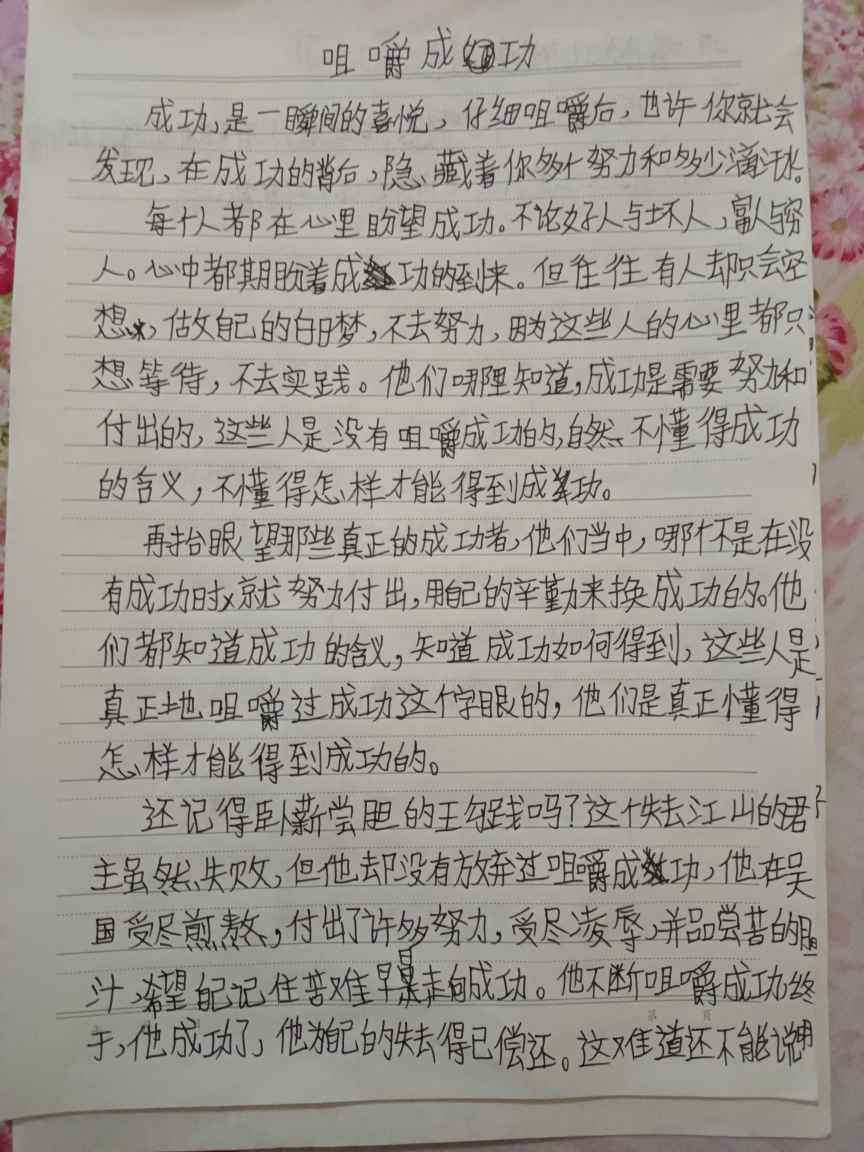 咀嚼成功
成功,是一瞬间的喜悦,仔细咀嚼后,也许你就会
发现,在成功的背后,隐藏着你多少努力和多少滴汗水。
每个人都在心里盼望成功。不论好人与坏人,富人与穷
人。心中都期盼着成功的到来。但往往有人却只会空
想,做文自己的白日梦,不去努力,因为这些人的心里都只
想等待,不去实践。他们哪里知道,成功是需要努力和
付出的,这些人是没有咀嚼成功的,自然不懂得成功
的含义,不懂得怎样才能得到成功。
再抬眼望那些真正的成功者,他们当中,哪个不是在没
有成功时就努力付出,用自己的辛勤来换成功的。他
们都知道成功的含义,知道成功如何得到,这些人是
真正地咀嚼过成功这个字眼的,他们是真正懂得
怎样才能得到成功的。
还记得卧薪尝胆的王勾践吗?这个失去江山的君
主虽然失败,但他却没有放弃过咀嚼成功,他在吴
国受尽煎熬,付出了许多努力,受尽凌辱,并品尝苦的胆
汁,希望自己记住苦难早早走向成功。他不断咀嚼成功,终
于,他成功了,他为自己的失去得已偿还。这难道还不能说明
第 页